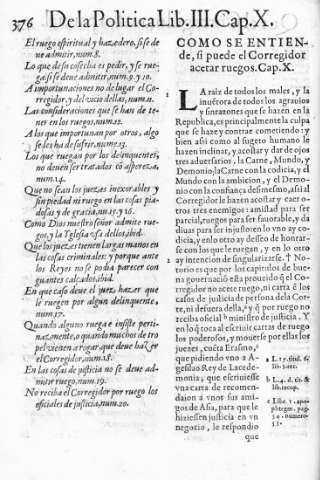 376 De la Politica Lib. III. Cap. X.
El ruego espiritual y hazedero, si se de
ue admitir, num. 8.
Lo que de su cosecha es pedir, y se rue-
ga si se deue admitir, num. 9. y 10.
A importunaciones no de lugar el Co-
rregidor, y del vicio dellas, num. 11.
Las consideraciones que se han de te-
ner en los ruegos, num. 12.
A los que importunan por otros, algo
se les ha de sufrir, num. 13.
Los que ruegan por los delinquentes,
no deuen ser tratados cõ aspereza,
num. 14.
Que no sean los juezes inexorables y
sin piedad ni ruego en las cosas pia-
dosas y de gracia, nu. 15. y 16.
Como Dios nuestro señor admite rue-
gos, y la Yglesia vsa dellos, ibid.
Que los juezes tienen largas manos en
las cosas criminales: y porque ante
los Reyes no se podia parecer con
guantes calçados, ibid.
En que caso deue el juez, hazer que
le rueguen por algun delinquente,
num. 17.
Quando alguno ruega e insiste perti-
nazmente, o quando muchos de tro
pel vienen a rogar, que deue hazer
el Corregidor, num. 18.
En las cosas de justicia no se deue ad-
mitir ruego, num. 19.
No reciba el Corregidor por ruego los
oficiales de justicia, num. 20.
COMO SE ENTIEN-
de, si puede el Corregidor
acetar ruegos. Cap. X.
1 LA raiz de todos los males, y la
inuẽtora de todos los agrauios
y sinrazones que se hazen en la
Republica, es principalmente la culpa
que se haze y contrae cometiendo: y
bien assi como al sugeto humano le
hazen inclinar, y acostar y dar de ojos
tres aduersarios, la Carne, Mundo, y
Demonio, la Carne con la codicia, y el
Mundo con la ambicion, y el Demo-
nio con la confiança de si mesmo, assi al
Corregidor le hazen acostar y caer o-
tros tres enemigos: amistad para ser
parcial, ruegos para ser fauorable, y da
diuas para ser injusto en lo vno ay co-
dicia, y en lo otro ay desseo de honrar-
se con los que le ruegan, y en lo otro
2 ay intencion de singularizarse. † No-
torio es que por el capitulos de bue-
na gouernació está proueido q̃ el Cor-
regidor no acete ruego, ni carta ẽ los
casos de justicia de persona de la Cor-
te, ni de fuera della, a y q̃ por ruego no
reciba oficial b ministro de justicia. Y
en lo q̃ toca al escriuir cartas de ruego
los poderosos, y mouerse por ellas los
juezes, cuẽta Erasmo, c
que pidiendo vno a A-
gesilao Rey de Lacede-
monia, que escriuiesse
vna carta de recomen-
daion a vnos sus ami-
gos de Asia, para que le
hiziessen justicia en vn
negocio, le respondio
que
a L. 17. titul. 6.
lib. 3. rec.
b L. 4. d. tit. &
lib. recop.
c Lib. 1. apo-
phtegm. pag.
30. numero